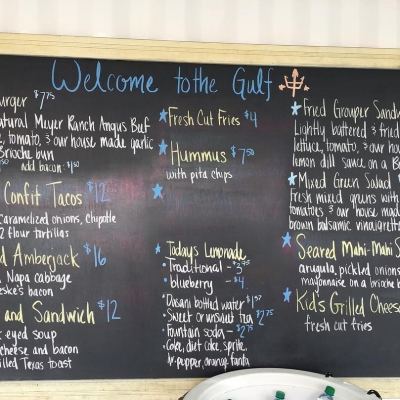 Welcome to the Gulf
urger $7.75
atural Meyer Ranch Angus Beef
, tomato, & our house made garlic
Brioche bun
add bacon $1.50
Confit Tacos $12
caramelized onions, chipotle
2 flour tortillas
d Amberjack $16
Napa cabbage
eske's bacon
and Sandwich $12
eyed soup
cheese and bacon
illed Texas toast
Fresh Cut Fries $4
Hummus $7.50
with pita chips
Todays Lemonade
• Traditional - 3.75
• blueberry - $4
• Dasani bottled water $1.57
• Sweet or unsweet tea $2.75
• Fountain soda - $2.75
• Coke, diet coke, sprite,
dr. pepper, orange fanta
Fried Grouper Sandw
Lightly battered & fried
lettuce, tomato, & our hous
lemon dill sauce on a B
Mixed Green Salad
Fresh mixed greens with
tomatoes & our house mad
brown balsamic vinaigrett
Seared Mahi-Mahi S
arugula, pickled onions
mayonnaise on a brioche b
Kid's Grilled Cheese
fresh cut fries